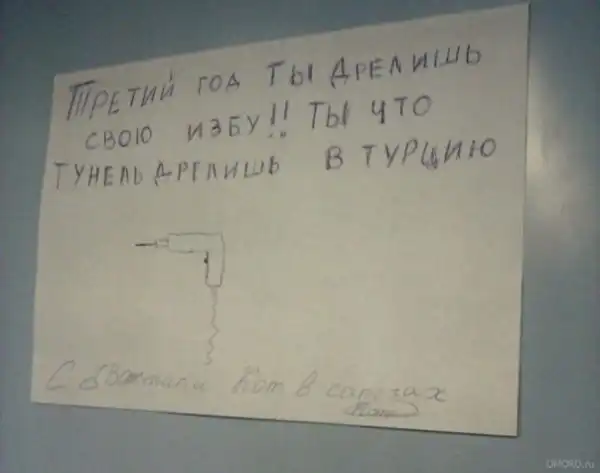 ТРЕТИЙ ГОД ТЫ ДРЕЛИШЬ
СВОЮ ИЗБУ!! ТЫ ЧТО
ТУНЕЛЬ ДРЕЛИШЬ В ТУРЦИЮ
С Кот в сапогах
Кот
UMORO.ru